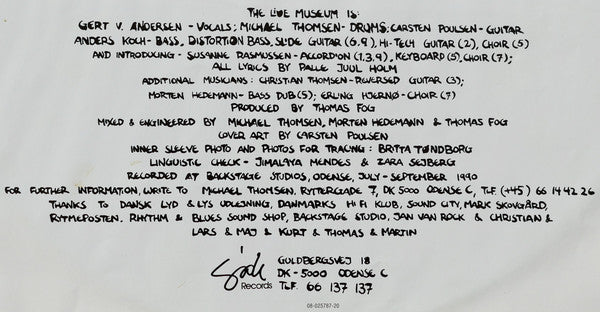 THE LIVE MUSEUM IS:
GERT V. ANDERSEN - VOCALS; MICHAEL THOMSEN - DRUMS; CARSTEN POULSEN - GUITAR
ANDERS KOCH - BASS, DISTORTION BASS, SLIDE GUITAR (6,9), HI-TECH GUITAR (2), CHOIR (5)
AND INTRODUCING - SUSANNE RASMUSSEN - ACCORDION (1,3,9), KEYBOARD (5), CHOIR (7);
ALL LYRICS BY PALLE JUUL HOLM
ADDITIONAL MUSICIANS: CHRISTIAN THOMSEN - REVERSED GUITAR (3);
MORTEN HEDEMANN - BASS DUB (5); ERLING HJERNØ - CHOIR (7)
PRODUCED BY THOMAS FOG
MIXED & ENGINEERED BY MICHAEL THOMSEN, MORTEN HEDEMANN & THOMAS FOG
COVER ART BY CARSTEN POULSEN
INNER SLEEVE PHOTO AND PHOTOS FOR TRACING: BRITTA TØNDBORG
LINGUISTIC CHECK - JIMALAYA MENDES & ZARA SEJBERG
RECORDED AT BACKSTAGE STUDIOS, ODENSE, JULY - SEPTEMBER 1990
FOR FURTHER INFORMATION, WRITE TO MICHAEL THOMSEN, RYTTERGADE 7, DK 5000 ODENSE C, TLF. (+45) 66 14 42 26
THANKS TO DANSK LYD & LYS UDLEJNING, DANMARKS HI FI KLUB, SOUND CITY, MARK SKOVGÅRD,
RYTMEPOSTEN, RHYTHM & BLUES SOUND SHOP, BACKSTAGE STUDIO, JAN VAN ROCK & CHRISTIAN &
LARS & MAJ & KURT & THOMAS & MARTIN
GULDBERGSVEJ 18
DK-5000 ODENSE C
Records TLF. 66 137 137
08-025787-20